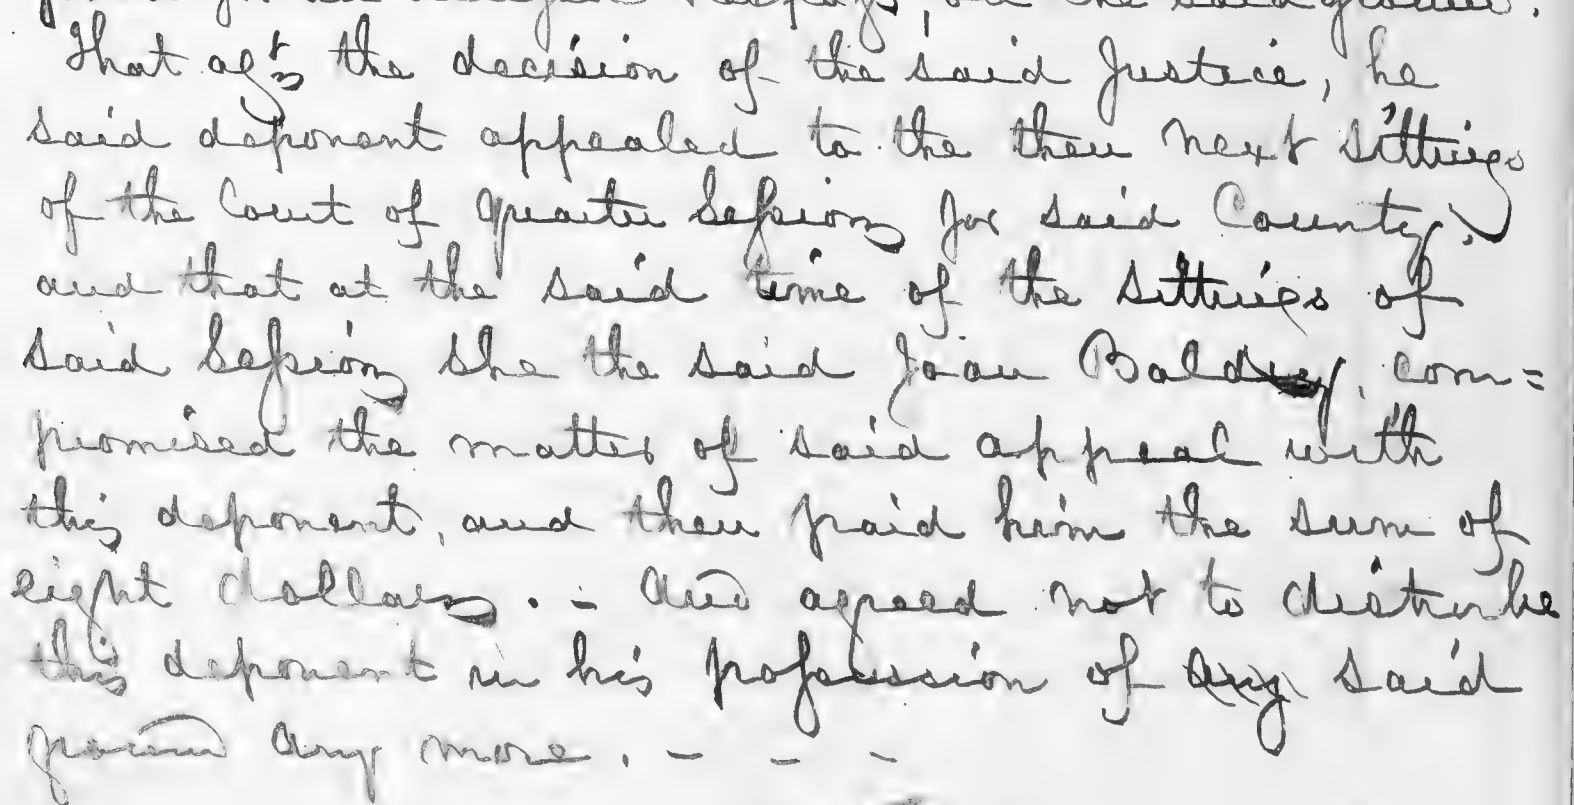 the said ground.
That agst the decision of the said Justice, he
said deponent appealed to the then next sittings
of the Court of Quarter Sessions for said County,
and that at the said time of the sittings of
said Sessions she the said Joan Baldry, com=
promised the matter of said appeal with
this deponent, and then paid him the sum of
eight dollars. - and agreed not to disturbe
this deponent in his possession of any said
ground any more. - - -